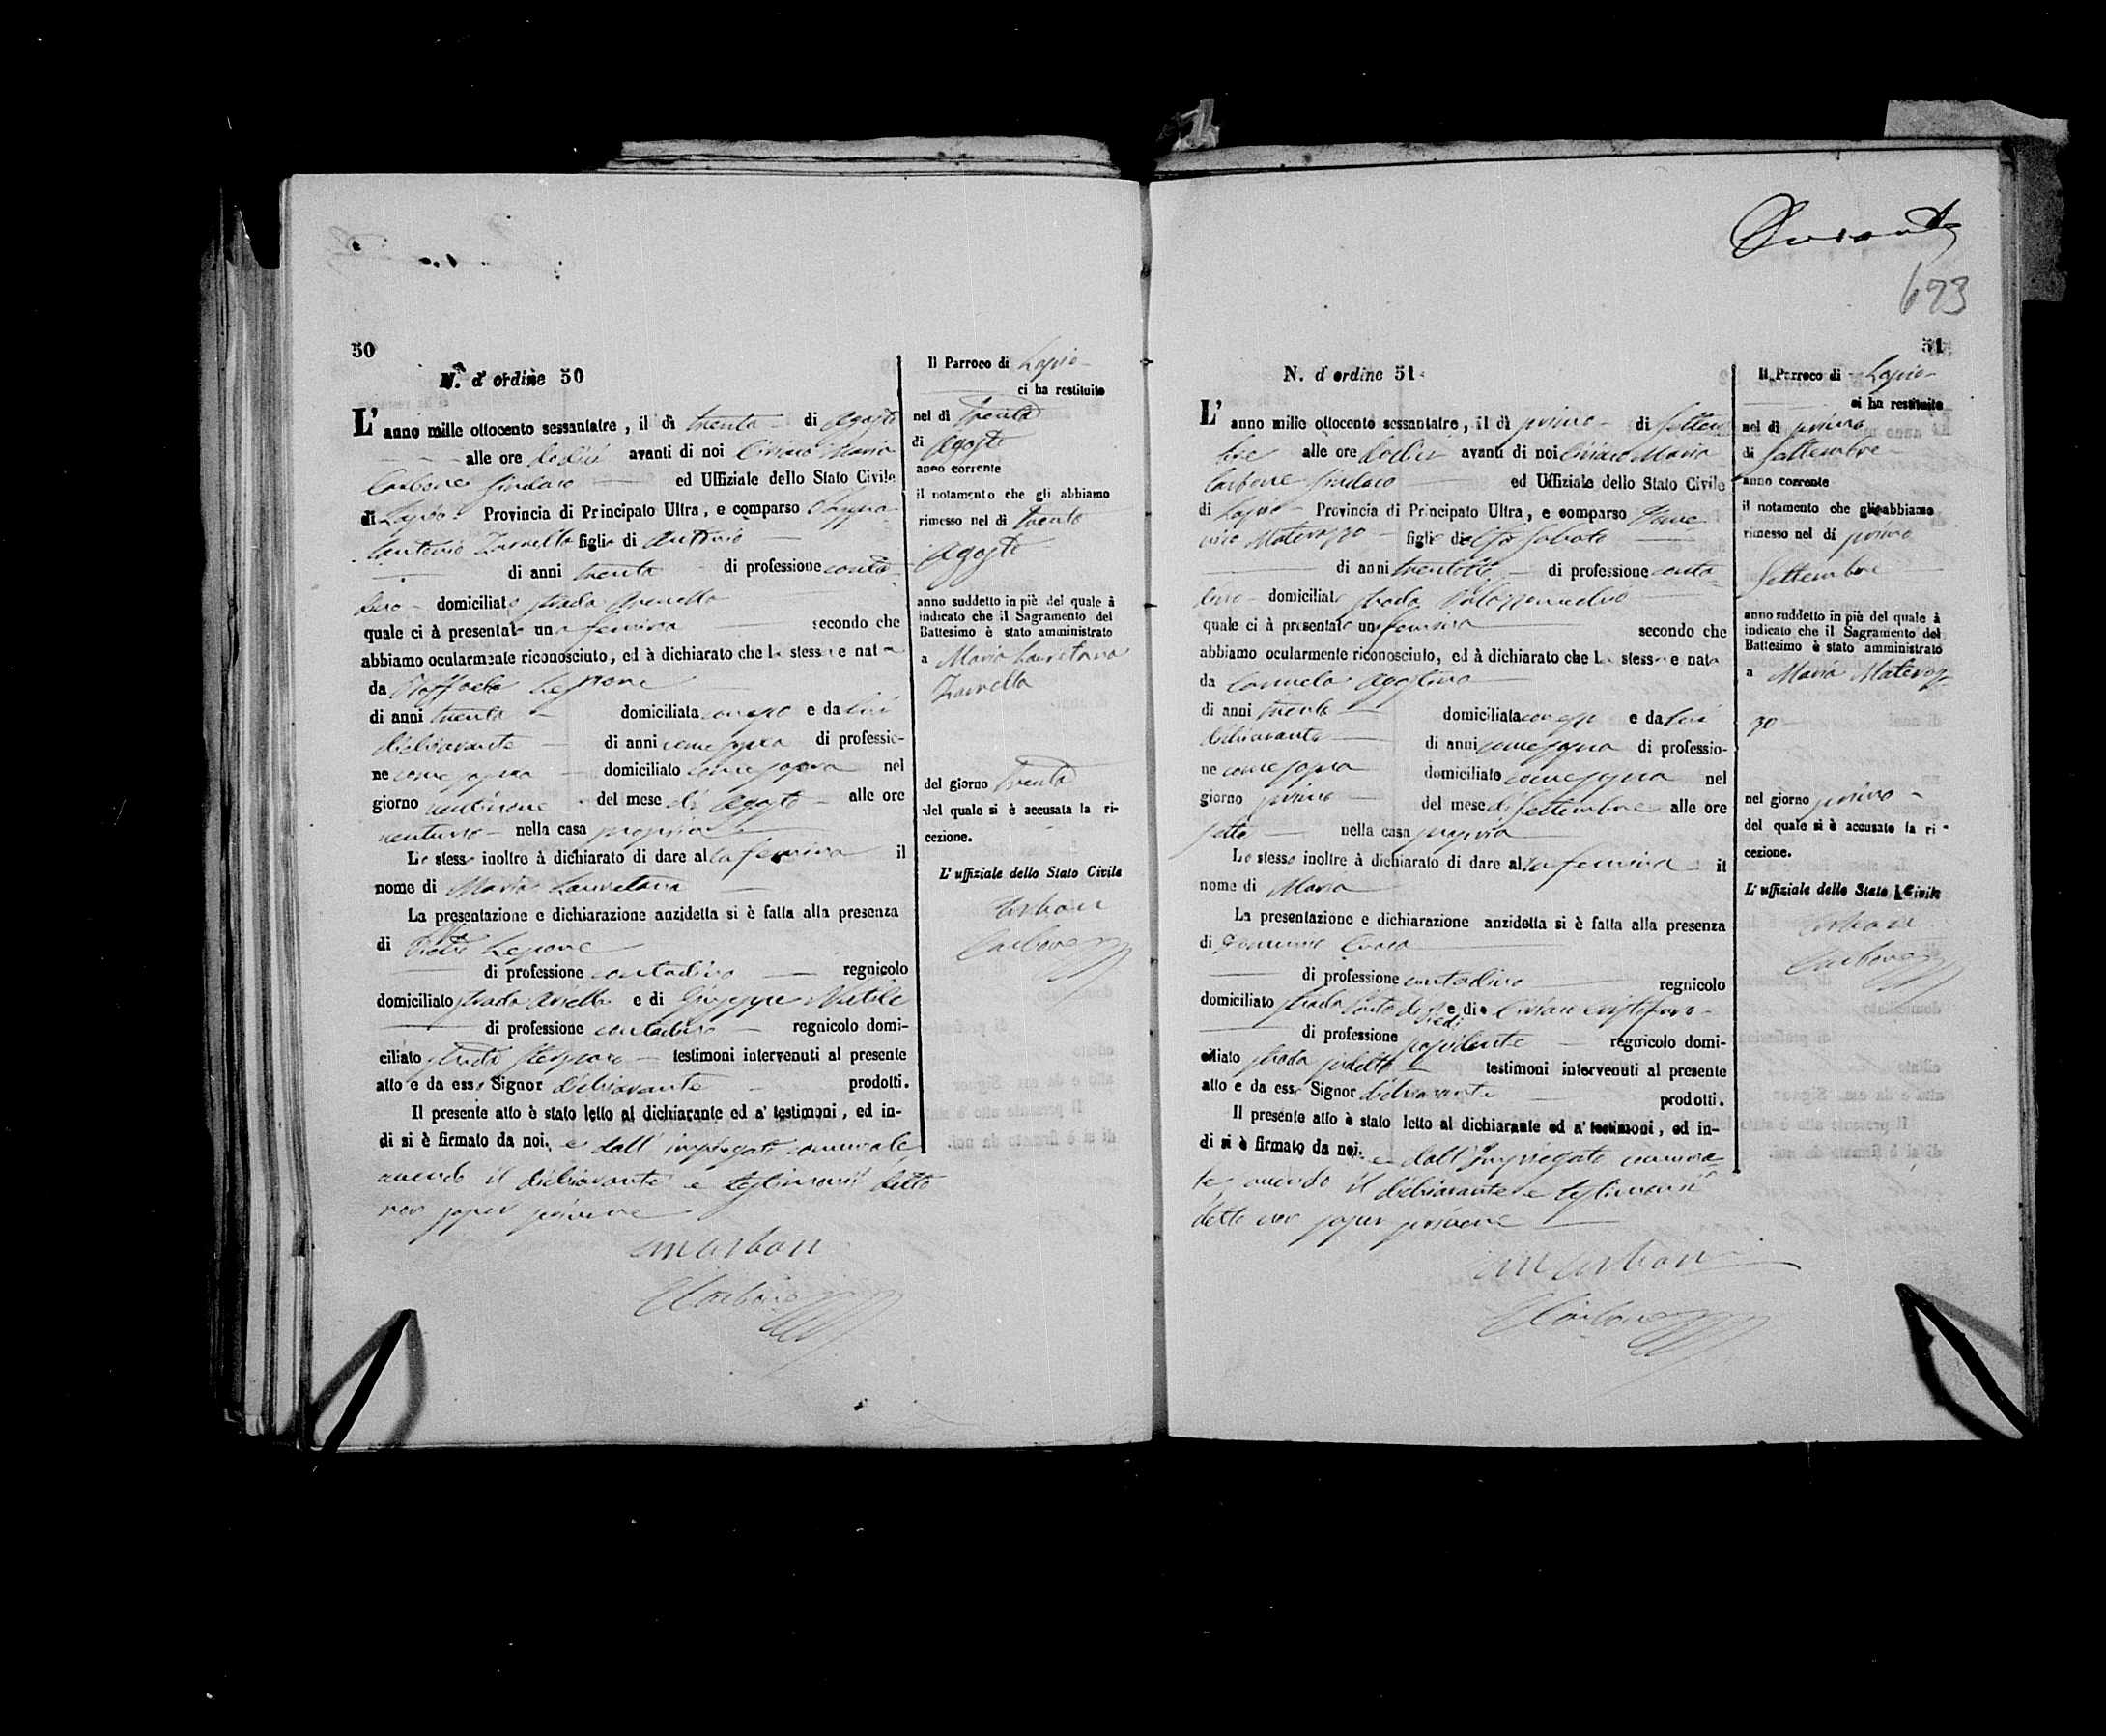 50
N. d'ordine 50
L'anno mille ottocento sessantatre, il dì trenta di Agosto
alle ore dodici avanti di noi Ciriaco Maria
Carbone Sindaco ed Uffiziale dello Stato Civile
di Lapio Provincia di Principato Ultra, e comparso
Antonio Zarrella figlio di Antonio
di anni trenta di professione conta-
dino domiciliato strada
quale ci à presentato una femina secondo che
abbiamo ocularmente riconosciuto, ed à dichiarato che la stessa e nata
da Raffaela Lepore
di anni trenta domiciliata come sopra e da lui
dichiarante di anni come sopra di professio-
ne come sopra domiciliato come sopra nel
giorno ventinove del mese di Agosto alle ore
ventuno nella casa propria
Lo stesso inoltre à dichiarato di dare alla femina il
nome di Maria Lauretana
La presentazione e dichiarazione anzidetta si è fatta alla presenza
di Lepore
di professione contadino regnicolo
domiciliato strada e di Giuseppe
di professione contadino regnicolo domi-
ciliato strada testimoni intervenuti al presente
atto e da esso Signor dichiarante prodotti.
Il presente atto è stato letto al dichiarante ed a' testimoni, ed in-
di si è firmato da noi. e dall'impiegato comunale
avendo il dichiarante e testimonii detto
non saper scrivere
Carbone
Il Parroco di Lapio
ci ha restituito
nel dì trenta
di Agosto
anno corrente
il notamento che gli abbiamo
rimesso nel dì trenta
Agosto
anno suddetto in piè del quale à
indicato che il Sagramento del
Battesimo è stato amministrato
a Maria Lauretana
Zarrella
del giorno trenta
del quale si è accusata la ri-
cezione.
L'uffiziale dello Stato Civile
Carbone
673
51
N. d'ordine 51
L'anno mille ottocento sessantatre, il dì primo di Settem
bre alle ore dodici avanti di noi Ciriaco Maria
Carbone Sindaco ed Uffiziale dello Stato Civile
di Lapio Provincia di Principato Ultra, e comparso Dome
nico Materazzo figlio di Sabato
di anni trentotto di professione conta-
dino domiciliato strada
quale ci à presentato una femina secondo che
abbiamo ocularmente riconosciuto, ed à dichiarato che la stessa e nata
da Carmela
di anni trenta domiciliata come sopra e da lui
dichiarante di anni come sopra di professio-
ne come sopra domiciliato come sopra nel
giorno primo del mese di Settembre alle ore
sette nella casa propria
Lo stesso inoltre à dichiarato di dare alla femina il
nome di Maria
La presentazione e dichiarazione anzidetta si è fatta alla presenza
di
di professione contadino regnicolo
domiciliato strada e di Ciriaco
di professione possidente regnicolo domi-
ciliato strada testimoni intervenuti al presente
atto e da esso Signor dichiarante prodotti.
Il presente atto è stato letto al dichiarante ed a' testimoni, ed in-
di si è firmato da noi. e dall'impiegato comuna
le avendo il dichiarante e testimonii
detto non saper scrivere
Carbone
Il Parroco di Lapio
ci ha restituito
nel dì primo
di Settembre
anno corrente
il notamento che gli abbiamo
rimesso nel dì primo
Settembre
anno suddetto in piè del quale à
indicato che il Sagramento del
Battesimo è stato amministrato
a Maria Materaz
zo
nel giorno primo
del quale si è accusato la ri-
cezione.
L'uffiziale dello Stato Civile
Carbone